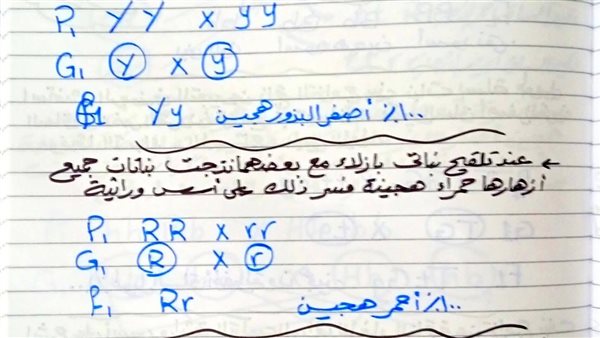 P1 YY x yy
G1 Y x y
F1 Yy ١٠٠٪ أصفر البذور هجين
← عند تلقيح نباتى بازلاء مع بعضهما نتجت نباتات جميع
أزهارها حمراء هجينة فسر ذلك على أسس وراثية
P1 RR x rr
G1 R x r
F1 Rr ١٠٠٪ أحمر هجين